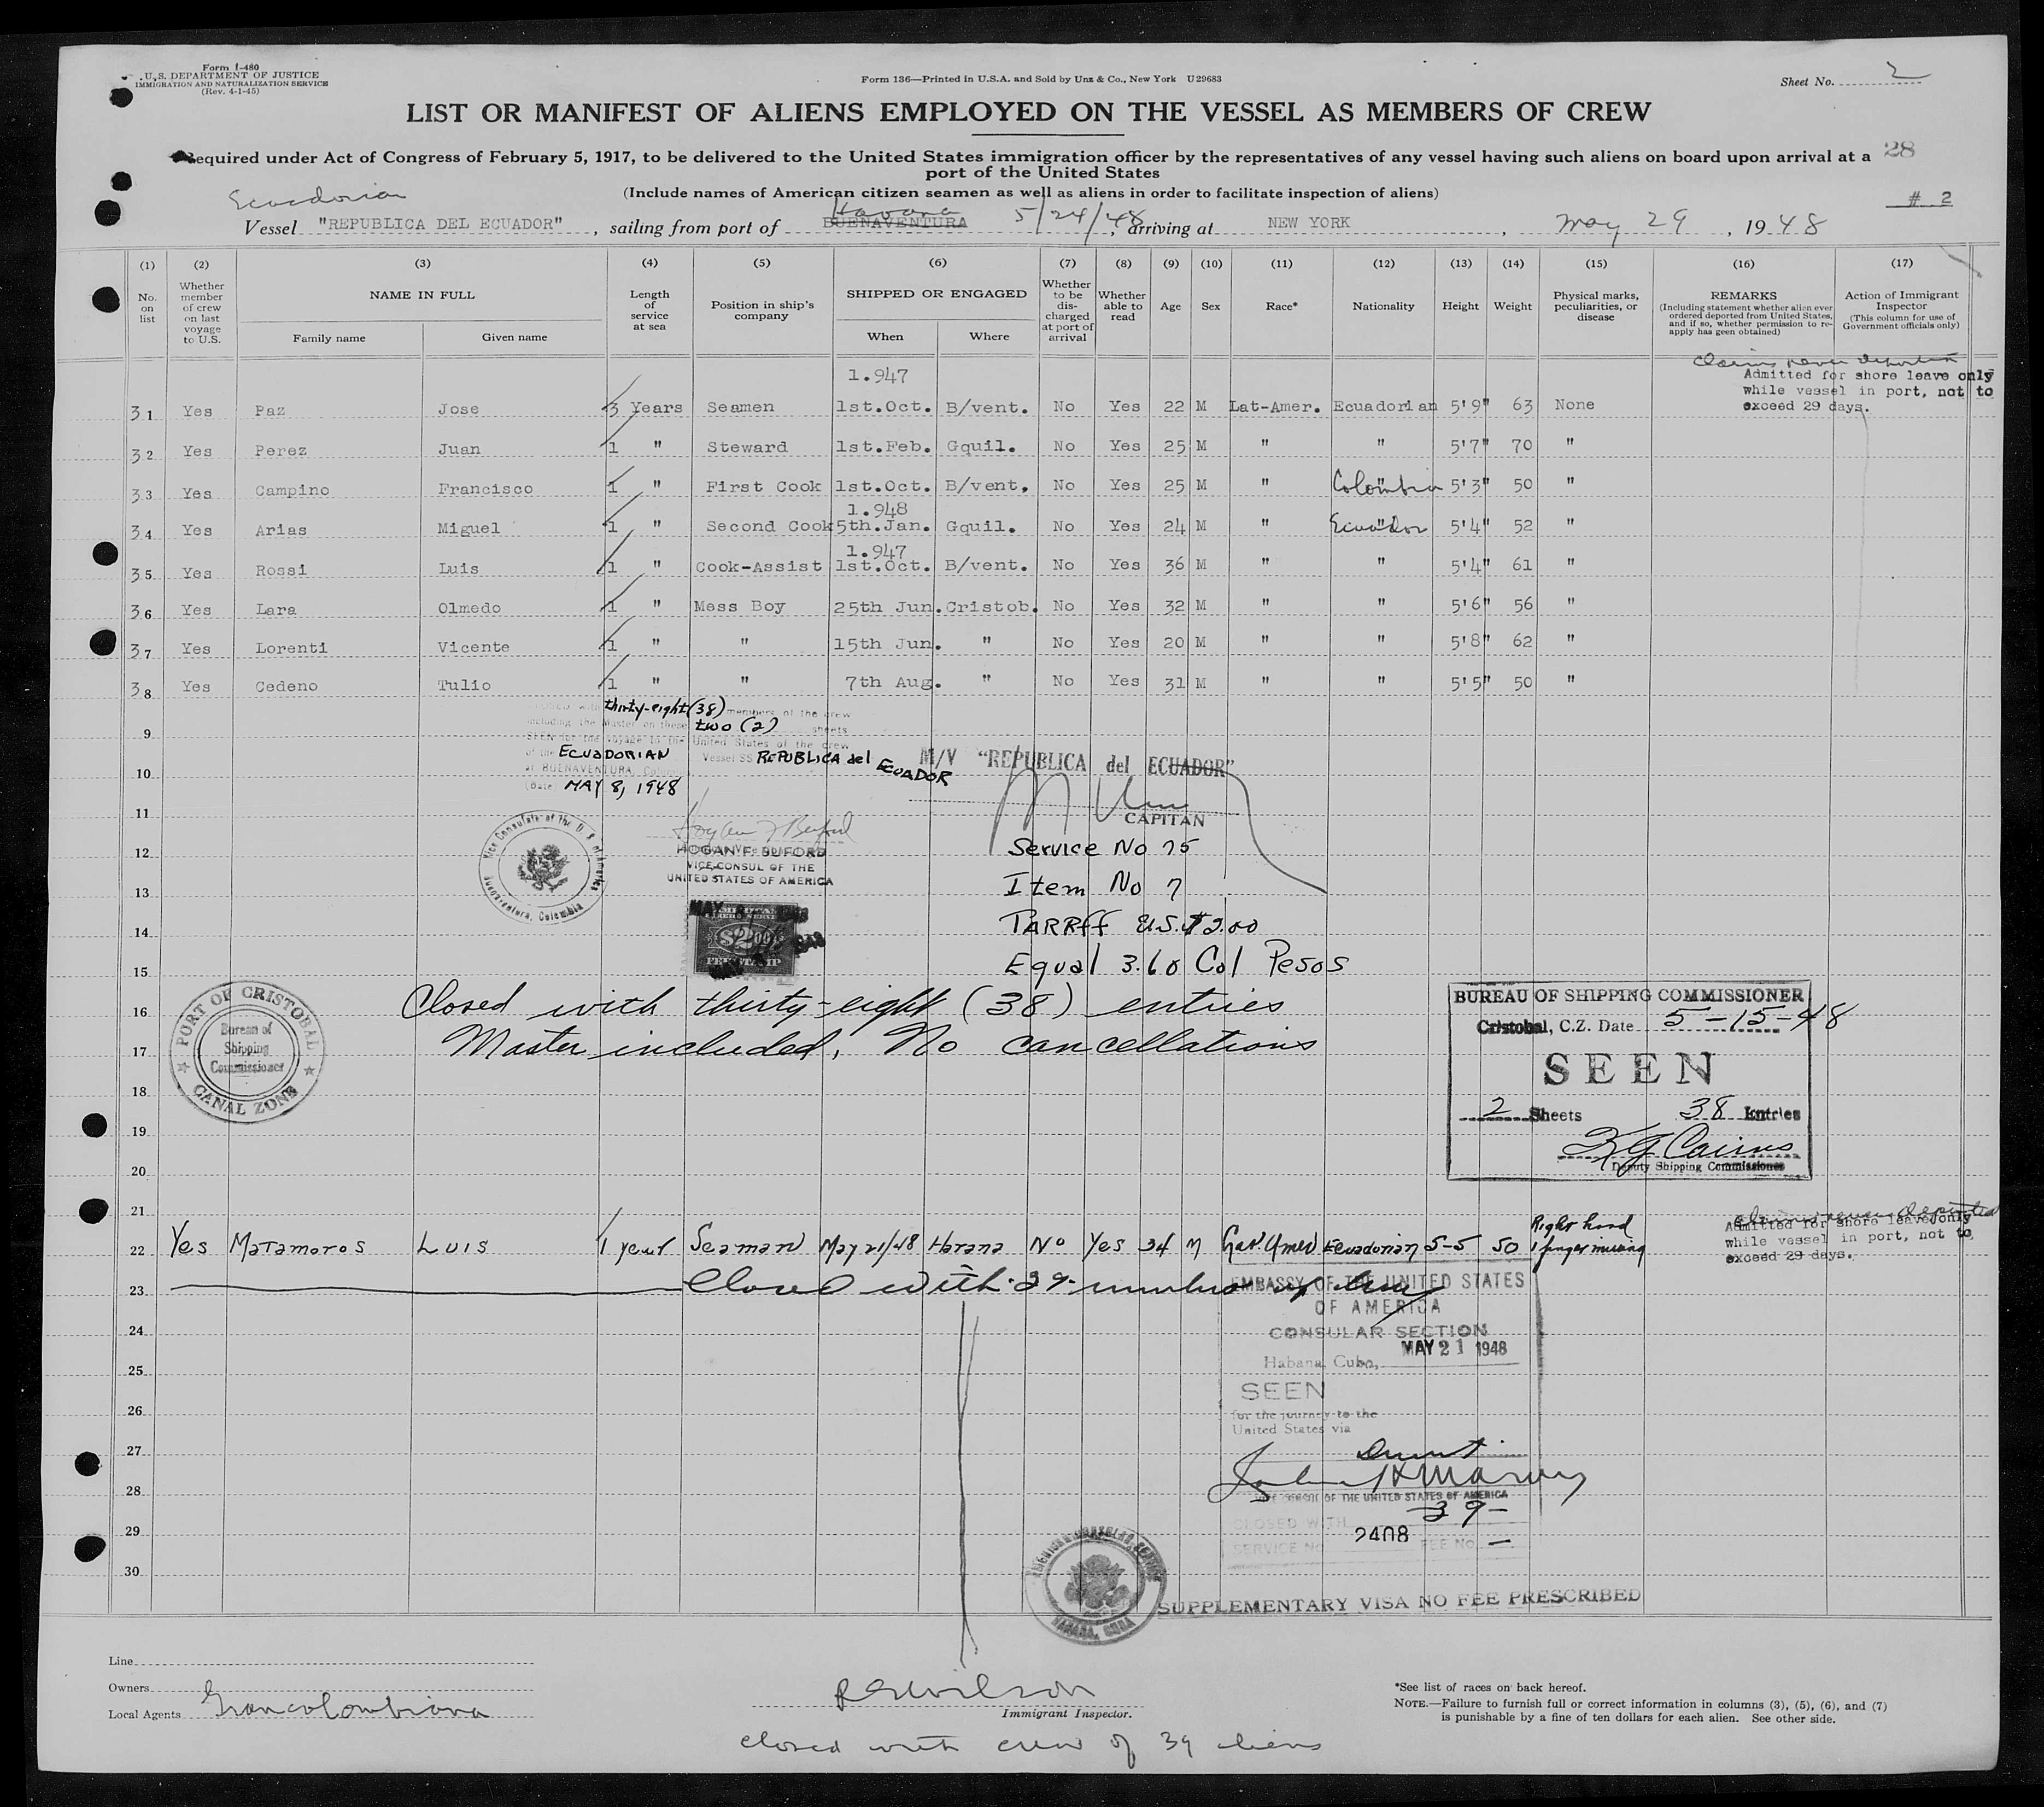 Form I-480
U.S. DEPARTMENT OF JUSTICE
IMMIGRATION AND NATURALIZATION SERVICE
(Rev. 4-1-45)
Form 136—Printed in U.S.A. and Sold by Unz & Co., New York U29683
Sheet No. 2
LIST OR MANIFEST OF ALIENS EMPLOYED ON THE VESSEL AS MEMBERS OF CREW
Required under Act of Congress of February 5, 1917, to be delivered to the United States immigration officer by the representatives of any vessel having such aliens on board upon arrival at a
port of the United States
28
(Include names of American citizen seamen as well as aliens in order to facilitate inspection of aliens)
Ecuadorian
# 2
Havana 5/24/48
Vessel "REPUBLICA DEL ECUADOR", sailing from port of BUENAVENTURA, arriving at NEW YORK, May 29, 1948
(1) (2) (3) (4) (5) (6) (7) (8) (9) (10) (11) (12) (13) (14) (15) (16) (17)
No. on list
Whether member of crew on last voyage to U.S.
NAME IN FULL
Family name
Given name
Length of service at sea
Position in ship's company
SHIPPED OR ENGAGED
When
Where
Whether to be discharged at port of arrival
Whether able to read
Age
Sex
Race*
Nationality
Height
Weight
Physical marks, peculiarities, or disease
REMARKS
(Including statement whether alien ever ordered deported from United States, and if so, whether permission to reapply has geen obtained)
Action of Immigrant Inspector
(This column for use of Government officials only)
Claims never deported
Admitted for shore leave only
while vessel in port, not to
exceed 29 days.
1.947
31 Yes Paz Jose 3 Years Seamen 1st.Oct. B/vent. No Yes 22 M Lat-Amer. Ecuadorian 5'9" 63 None
32 Yes Perez Juan 1 " Steward 1st.Feb. Gquil. No Yes 25 M " " 5'7" 70 "
33 Yes Campino Francisco 1 " First Cook 1st.Oct. B/vent. No Yes 25 M " Colombia 5'3" 50 "
1.948
34 Yes Arias Miguel 1 " Second Cook 5th.Jan. Gquil. No Yes 24 M " Ecuador 5'4" 52 "
1.947
35 Yes Rossi Luis 1 " Cook-Assist 1st.Oct. B/vent. No Yes 36 M " " 5'4" 61 "
36 Yes Lara Olmedo 1 " Mess Boy 25th Jun. Cristob. No Yes 32 M " " 5'6" 56 "
37 Yes Lorenti Vicente 1 " " 15th Jun. " No Yes 20 M " " 5'8" 62 "
38 Yes Cedeno Tulio 1 " " 7th Aug. " No Yes 31 M " " 5'5" 50 "
CLOSED with thirty-eight (38) members of the crew
including the Master on these two (2) sheets
SEEN for the voyage to the United States of the crew
of the ECUADORIAN Vessel SS REPUBLICA del ECUADOR
at BUENAVENTURA, Colombia
(Date) MAY 8, 1948
M/V "REPUBLICA del ECUADOR"
CAPITAN
Vice Consulate of the U. S. of America
Buenaventura, Colombia
HOGAN F. BUFORD
VICE CONSUL OF THE
UNITED STATES OF AMERICA
Service No 75
Item No 7
TARRff U.S. $2.00
Equal 3.60 Col Pesos
$2.00
FEE STAMP
9
10
11
12
13
14
15
16
17
18
19
20
21
Closed with thirty-eight (38) entries
Master included, No cancellations
PORT OF CRISTOBAL
Bureau of
Shipping
Commissioner
CANAL ZONE
BUREAU OF SHIPPING COMMISSIONER
Cristobal, C.Z. Date 5-15-48
SEEN
2 Sheets 38 Entries
Cairns
Deputy Shipping Commissioner
22 Yes Matamoros Luis 1 year Seaman May 21/48 Havana No Yes 34 M Lat. Amer Ecuadorian 5-5 50 Right hand 1 finger missing
Claims never deported
Admitted for shore leave only
while vessel in port, not to
exceed 29 days.
23 Closed with 39 members of crew
24
25
26
27
28
29
30
EMBASSY OF THE UNITED STATES
OF AMERICA
CONSULAR SECTION
MAY 21 1948
Habana, Cuba,
SEEN
for the journey to the
United States via
VICE CONSUL OF THE UNITED STATES OF AMERICA
CLOSED WITH 39-
SERVICE No 2408 FEE No. —
AMERICAN CONSULAR SERVICE
HABANA, CUBA
SUPPLEMENTARY VISA NO FEE PRESCRIBED
Line
Owners
Local Agents Grancolombiana
R S Wilson
Immigrant Inspector.
closed with crew of 39 aliens
*See list of races on back hereof.
NOTE.—Failure to furnish full or correct information in columns (3), (5), (6), and (7)
is punishable by a fine of ten dollars for each alien. See other side.